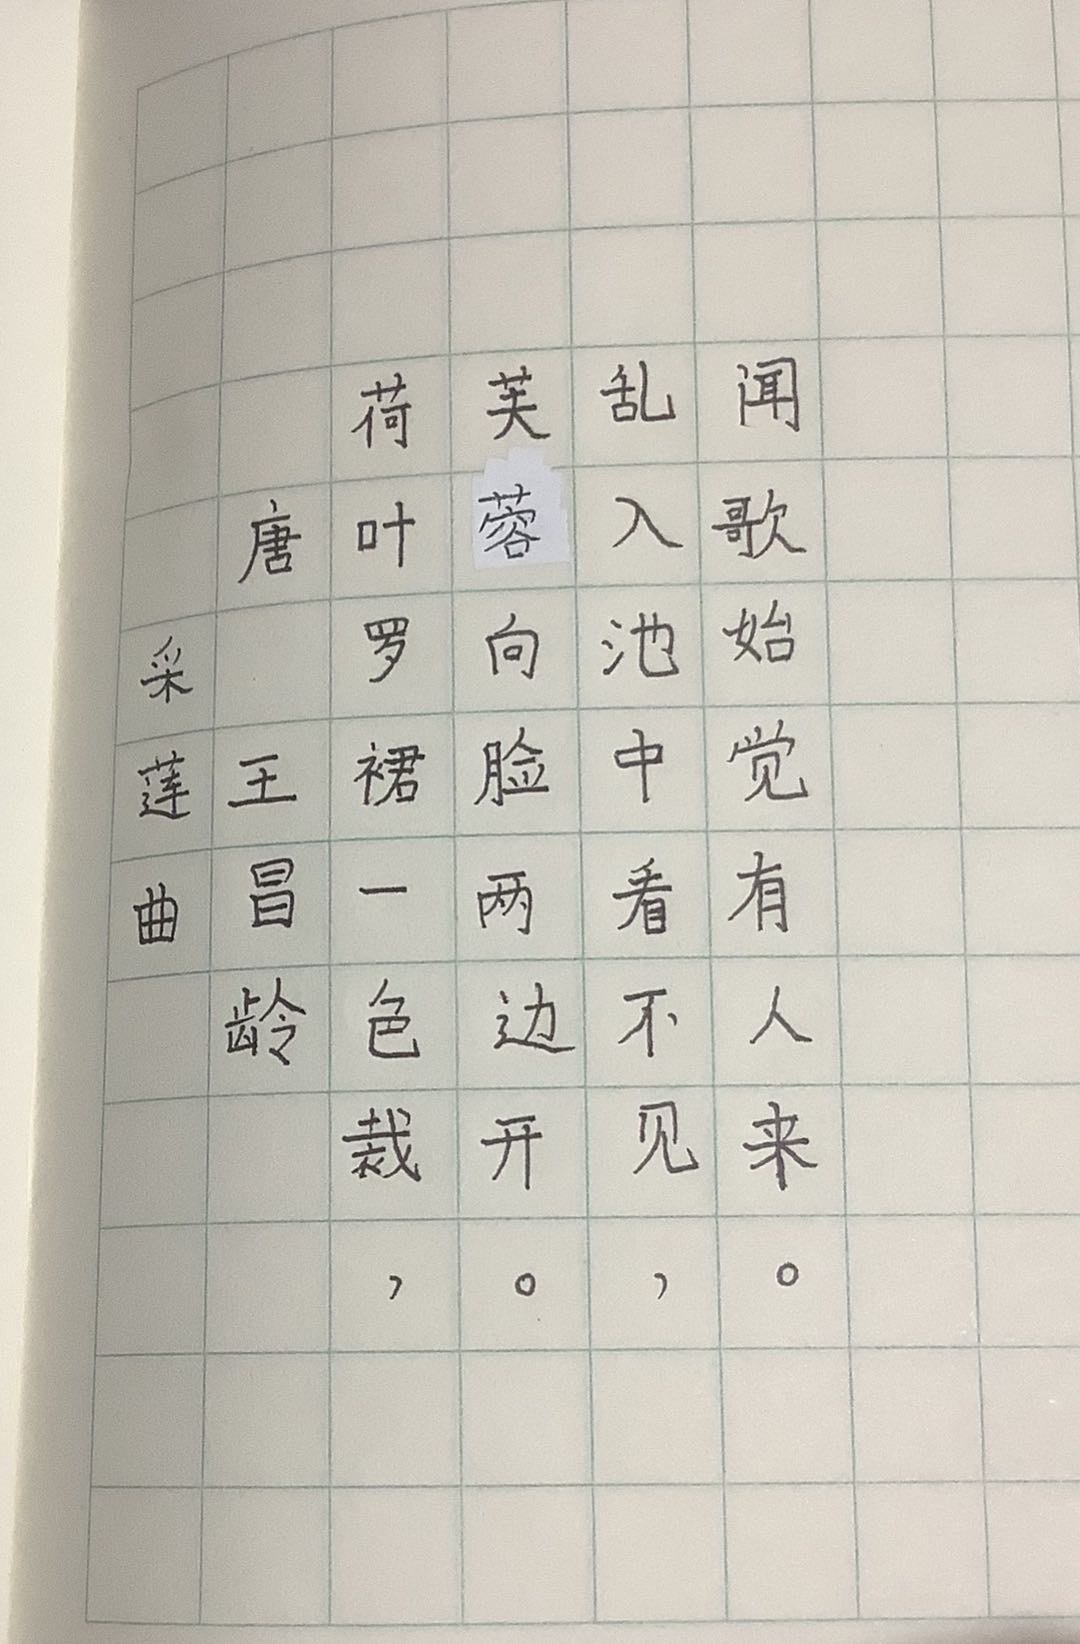 采莲曲
唐 王昌龄
荷叶罗裙一色裁，
芙蓉向脸两边开。
乱入池中看不见，
闻歌始觉有人来。